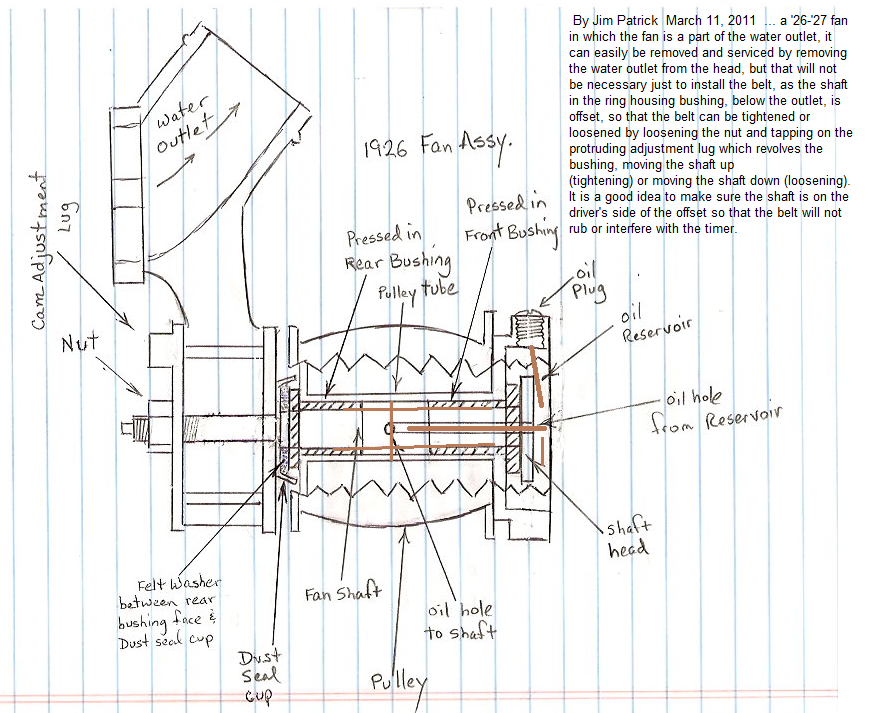 By Jim Patrick March 11, 2011 ... a '26-'27 fan
in which the fan is a part of the water outlet, it
can easily be removed and serviced by removing
the water outlet from the head, but that will not
be necessary just to install the belt, as the shaft
in the ring housing bushing, below the outlet, is
offset, so that the belt can be tightened or
loosened by loosening the nut and tapping on the
protruding adjustment lug which revolves the
bushing, moving the shaft up
(tightening) or moving the shaft down (loosening).
It is a good idea to make sure the shaft is on the
driver's side of the offset so that the belt will not
rub or interfere with the timer.
water
outlet
1926 Fan Assy.
Cam Adjustment
Lug
Nut
Pressed in
Rear Bushing
Pulley tube
Pressed in
Front Bushing
oil
Plug
oil
Reservoir
oil hole
from Reservoir
shaft
head
Felt Washer
between rear
bushing face &
Dust seal cup
Dust
Seal
cup
Fan Shaft
oil hole
to shaft
Pulley